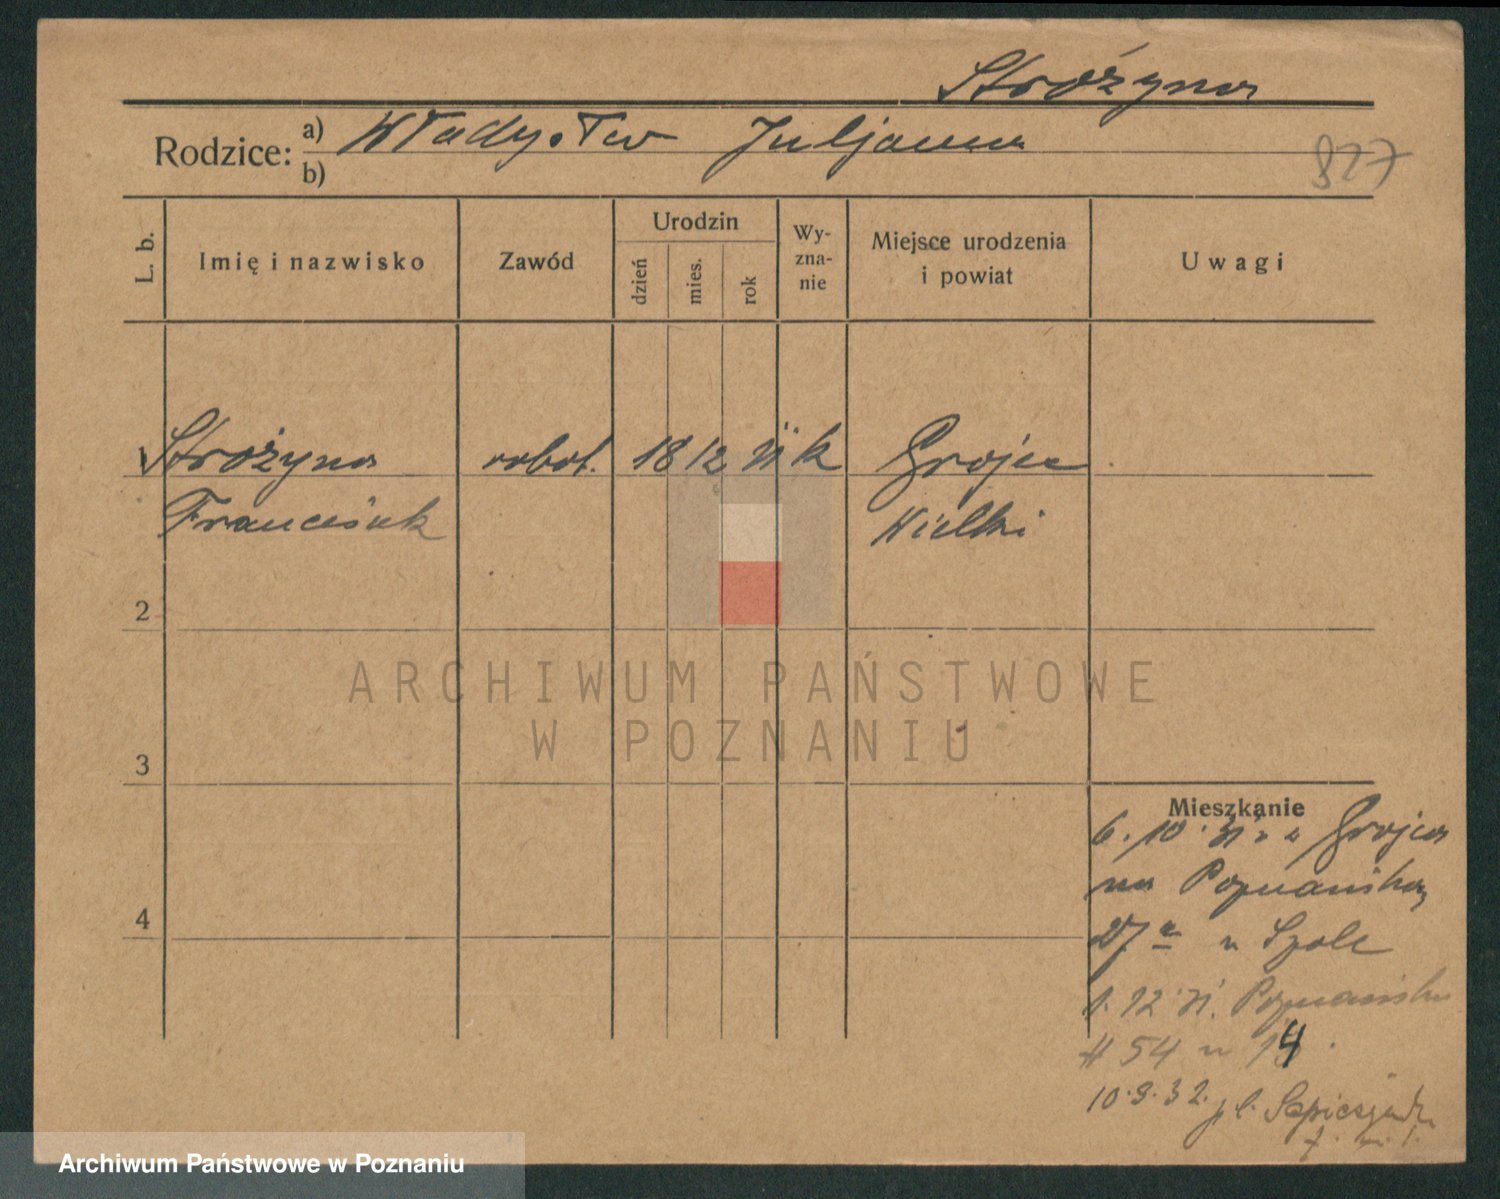 Stróżyna
Rodzice: a) Władysław Juljanna
b)
827
L. b. Imię i nazwisko Zawód Urodzin dzień mies. rok Wy-zna-nie Miejsce urodzenia i powiat Uwagi
1 Stróżyna robot. 18 12 k Grojec
Franciszek Wielki
2
ARCHIWUM PAŃSTWOWE
W POZNANIU
3
Mieszkanie
6. 10. 31 z Grojca
na Poznańską
27 u Szolc
1. 12 31. Poznańska
54 m 14
10.9.32. pl. Sapieżyński
4
Archiwum Państwowe w Poznaniu